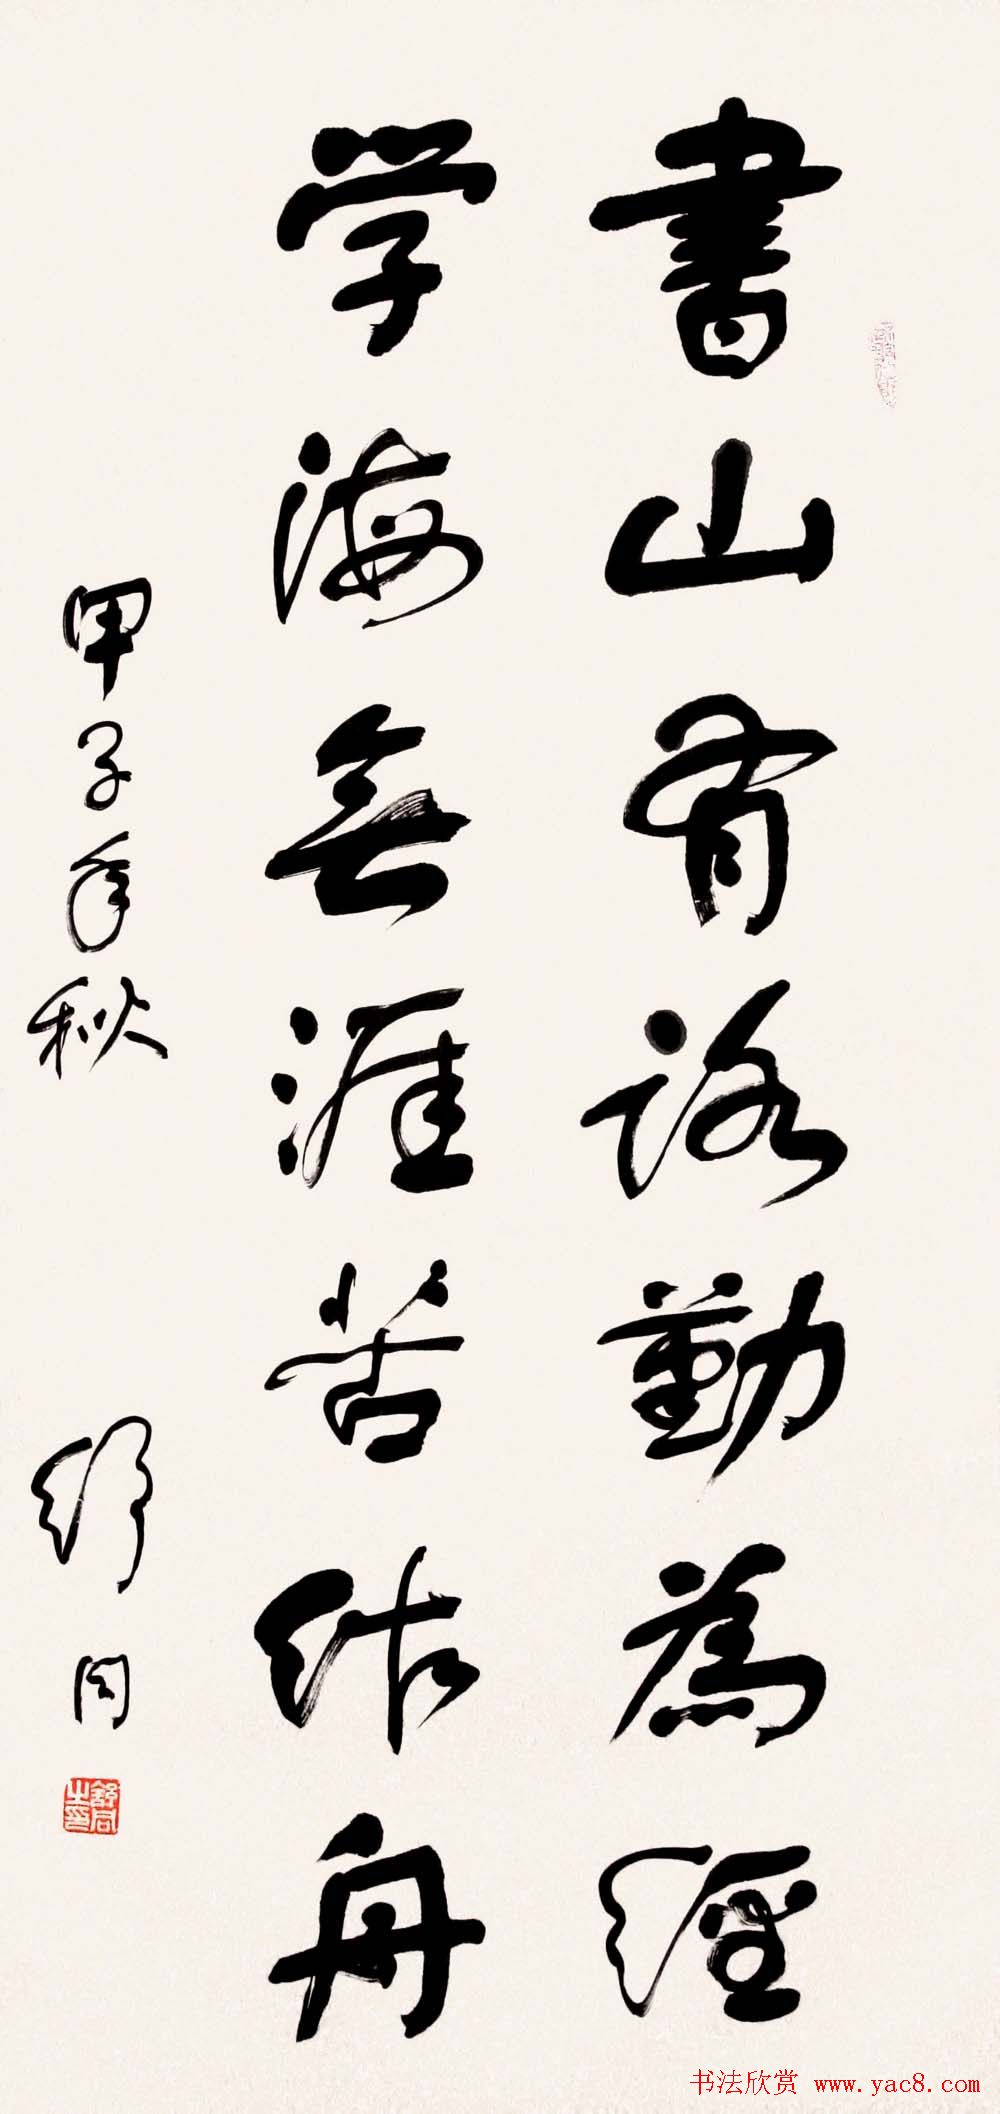 書山有路勤為徑
学海無涯苦作舟
甲子年秋 舒同
舒同之印
书法欣赏 www.yac8.com